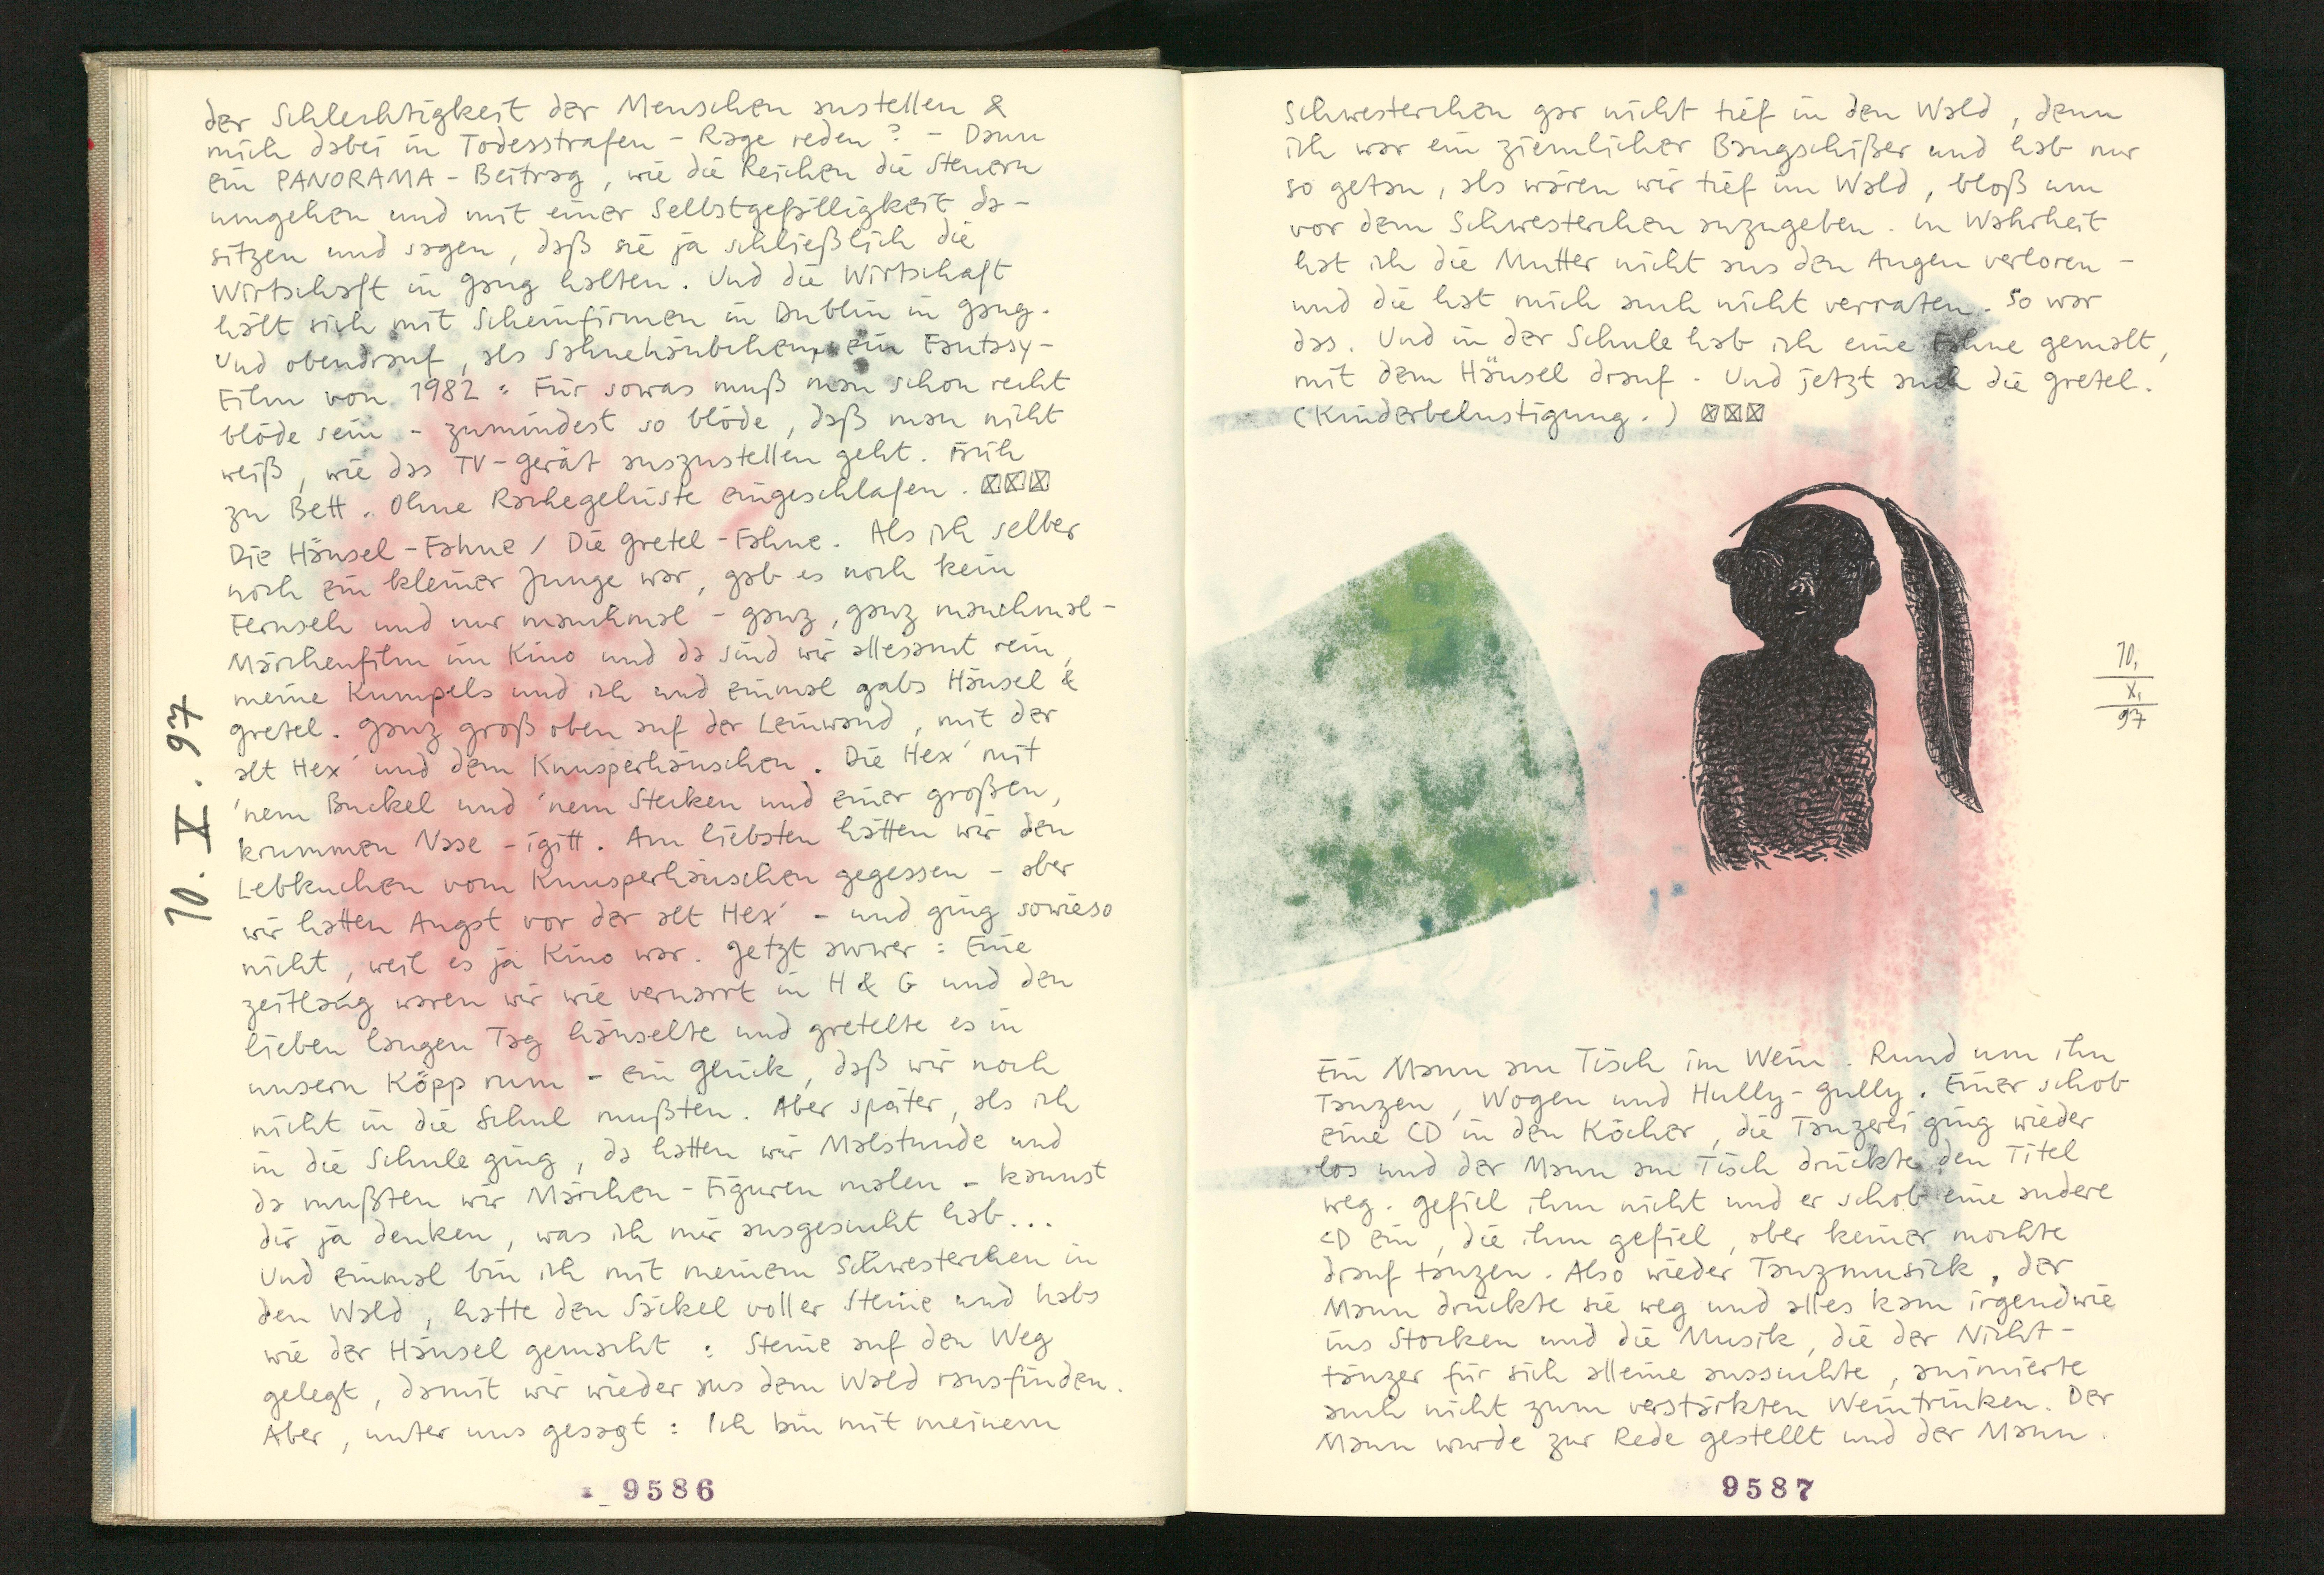 der Schlechtigkeit der Menschen anstellen &
mich dabei in Todesstrafen-Rage reden? - Dann
ein PANORAMA-Beitrag, wie die Reichen die Steuern
umgehen und mit einer Selbstgefälligkeit da-
sitzen und sagen, daß sie ja schließlich die
Wirtschaft in Gang halten. Und die Wirtschaft
hält sich mit Scheinfirmen in Dublin in Gang.
Und obendrauf, als Sahnehäubchen, ein Fantasy-
Film von 1982: Für sowas muß man schon recht
blöde sein - zumindest so blöde, daß man nicht
weiß, wie das TV-Gerät auszustellen geht. Früh
zu Bett. Ohne Rachegelüste eingeschlafen.
Die Hänsel-Fahne / Die Gretel-Fahne. Als ich selber
noch ein kleiner Junge war, gab es noch kein
Fernseh und nur manchmal - ganz, ganz manchmal -
Märchenfilm im Kino und da sind wir allesamt rein,
meine Kumpels und ich und einmal gabs Hänsel &
Gretel. Ganz groß oben auf der Leinwand, mit der
alt Hex' und dem Knusperhäuschen. Die Hex' mit
'nem Buckel und 'nem Stecken und einer großen,
krummen Nase - igitt. Am liebsten hätten wir den
Lebkuchen vom Knusperhäuschen gegessen - aber
wir hatten Angst vor der alt Hex' - und ging sowieso
nicht, weil es ja Kino war. Jetzt awwer: Eine
zeitlang waren wir wie vernarrt in H & G und den
lieben langen Tag hänselte und gretelte es in
unsern Köpp rum - ein Glück, daß wir noch
nicht in die Schul mußten. Aber später, als ich
in die Schule ging, da hatten wir Malstunde und
da mußten wir Märchen-Figuren malen - kannst
dir ja denken, was ich mir ausgesucht hab...
Und einmal bin ich mit meinem Schwesterchen in
den Wald, hatte den Säckel voller Steine und habs
wie der Hänsel gemacht: Steine auf den Weg
gelegt, damit wir wieder aus dem Wald rausfinden.
Aber, unter uns gesagt: Ich bin mit meinem
10. X. 97
9586
Schwesterchen gar nicht tief in den Wald, denn
ich war ein ziemlicher Bangschißer und hab nur
so getan, als wären wir tief im Wald, bloß um
vor dem Schwesterchen anzugeben. In Wahrheit
hat ich die Mutter nicht aus den Augen verloren -
und die hat mich auch nicht verraten. So war
das. Und in der Schule hab ich eine Fahne gemalt,
mit dem Hänsel drauf. Und jetzt auch die Gretel.
(Kinderbelustigung.)
10.
X.
97
Ein Mann am Tisch im Wein. Rund um ihn
Tanzen, Wogen und Hully-Gully. Einer schob
eine CD in den Köcher, die Tanzerei ging wieder
los und der Mann am Tisch drückte den Titel
weg. Gefiel ihm nicht und er schob eine andere
CD ein, die ihm gefiel, aber keiner mochte
drauf tanzen. Also wieder Tanzmusick, der
Mann drückte sie weg und alles kam irgendwie
ins Stocken und die Musik, die der Nicht-
tänzer für sich alleine aussuchte, animierte
auch nicht zum verstärkten Weintrinken. Der
Mann wurde zur Rede gestellt und der Mann.
9587